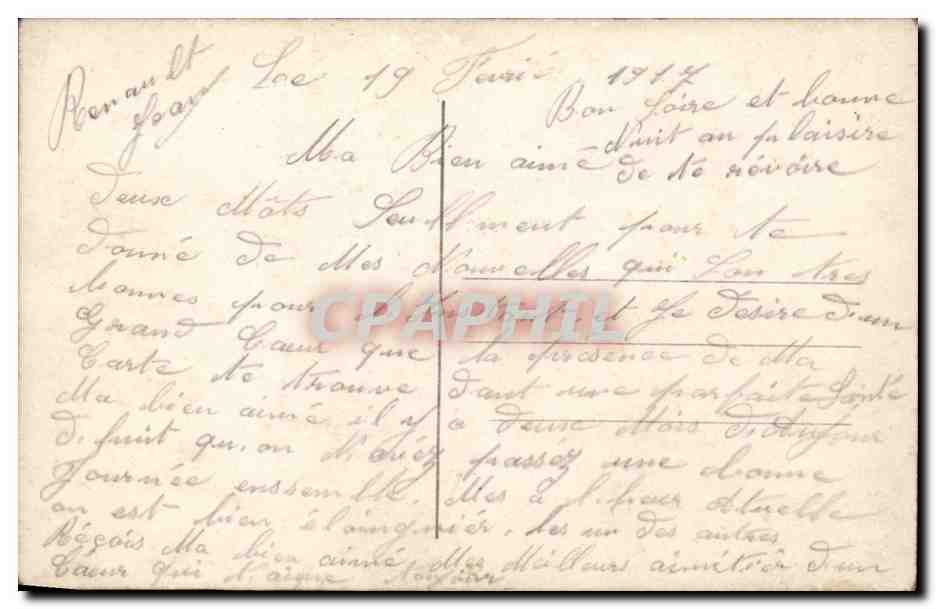 Renault
Jean
Le 19 Fevrié 1917
Bon Soire et bonne
Nuit au plaisire
de te révoire
Ma Bien aimé
Deux Môts Seullment pour te
donné de Mes Nouvelles qui Son tres
bonnes pour l'instant et Je desire d'un
Grand Cœur que la présence de Ma
Carte te trouve dant une parfaite Santé
Ma bien aimé il y a deux Mois d'Aujour
d'huit qu'on N'avéz passéz une bonne
Journée enssemlle. Mes a l'heur Atuelle
on est bien éloingniér. les un des autres
Réçois Ma bien aimé Mes Meilleurs aimitiér d'un
Cœur qui t'aime toujour
CPAPHIL